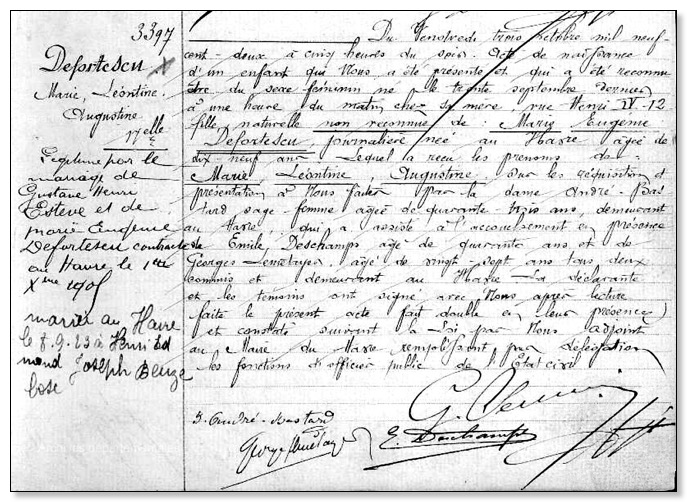 3397
Defortescu
Marie, Léontine,
Augustine
Nelle
Légitimé par le
mariage de
Gustave Henri
Esteve et de
Marie Eugénie
Defortescu contracté
au Havre le 1er
Xbre 1905
mariée au Havre
le 8.9.23 à Henri Ed
mond Joseph
Du Vendredi trois octobre mil neuf
cent-deux à cinq heures du soir. Acte de naissance
d'un enfant qui Nous a été présenté et qui a été reconnu
être du sexe féminin né le trente septembre dernier
à une heure du matin chez sa mère rue Henri IV-12
fille naturelle non reconnue de Marie Eugénie
Defortescu, journalière née au Havre âgée de
dix-neuf ans Lequel a reçu les prénoms de
Marie Léontine, Augustine. Sur les réquisition et
présentation à Nous faites par la dame André-Bas
tard sage-femme âgée de quarante-trois ans, demeurant
au Havre, qui a assisté à l'accouchement en présence
de Emile Deschamps âgé de quarante ans et de
Georges Lemetayer âgé de vingt-sept ans tous deux
commis et demeurant au Havre La déclarante
et les témoins ont signé avec Nous après lecture
faite le présent acte fait double en leur présence
et constaté suivant la Loi par Nous adjoint
au Maire du Havre remplissant par délégation
les fonctions d'officier public de l'Etat civil
André-Bastard
E. Deschamps